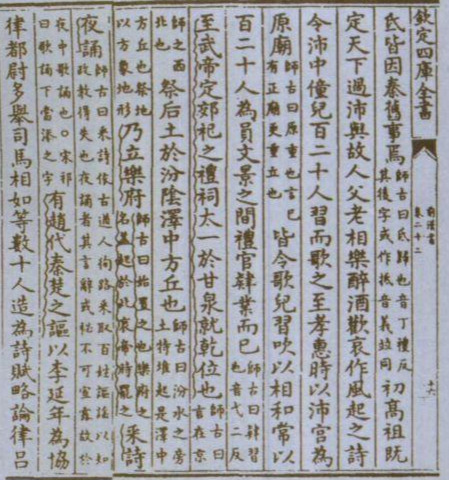 欽定四庫全書 前漢書 卷二十二 十六
氐皆因秦舊事焉師古曰氐歸也音丁禮反其後字或作抵音義並同初高祖既
定天下過沛與故人父老相樂醉酒歡哀作風起之詩
令沛中僮兒百二十人習而歌之至孝惠時以沛宮為
原廟師古曰原重也言已有正廟更重立也皆令歌兒習吹以相和常以
百二十人為員文景之間禮官肄業而已師古曰肄習也音弋二反
至武帝定郊祀之禮祠太一於甘泉就乾位也師古曰言在京
師之西北也祭后土於汾陰澤中方丘也師古曰汾水之旁土特堆起是澤中
方丘也祭地以方象地形乃立樂府師古曰始置之也樂府之名蓋起於此哀帝時罷之采詩
夜誦師古曰采詩依古遒人徇路采取百姓謳謠以知政教得失也夜誦者其言辭或祕不可宣露故於
夜中歌誦也○宋祁曰歌誦下當添之字有趙代秦楚之謳以李延年為協
律都尉多舉司馬相如等數十人造為詩賦略論律呂